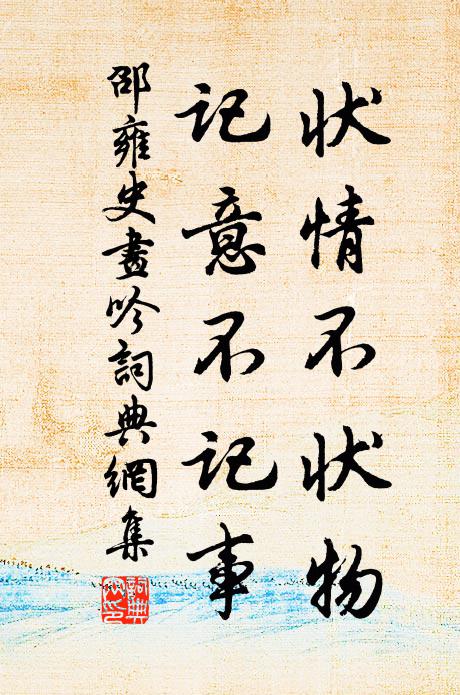 状情不状物
記意不記事
邵雍史畫吟詞典網集